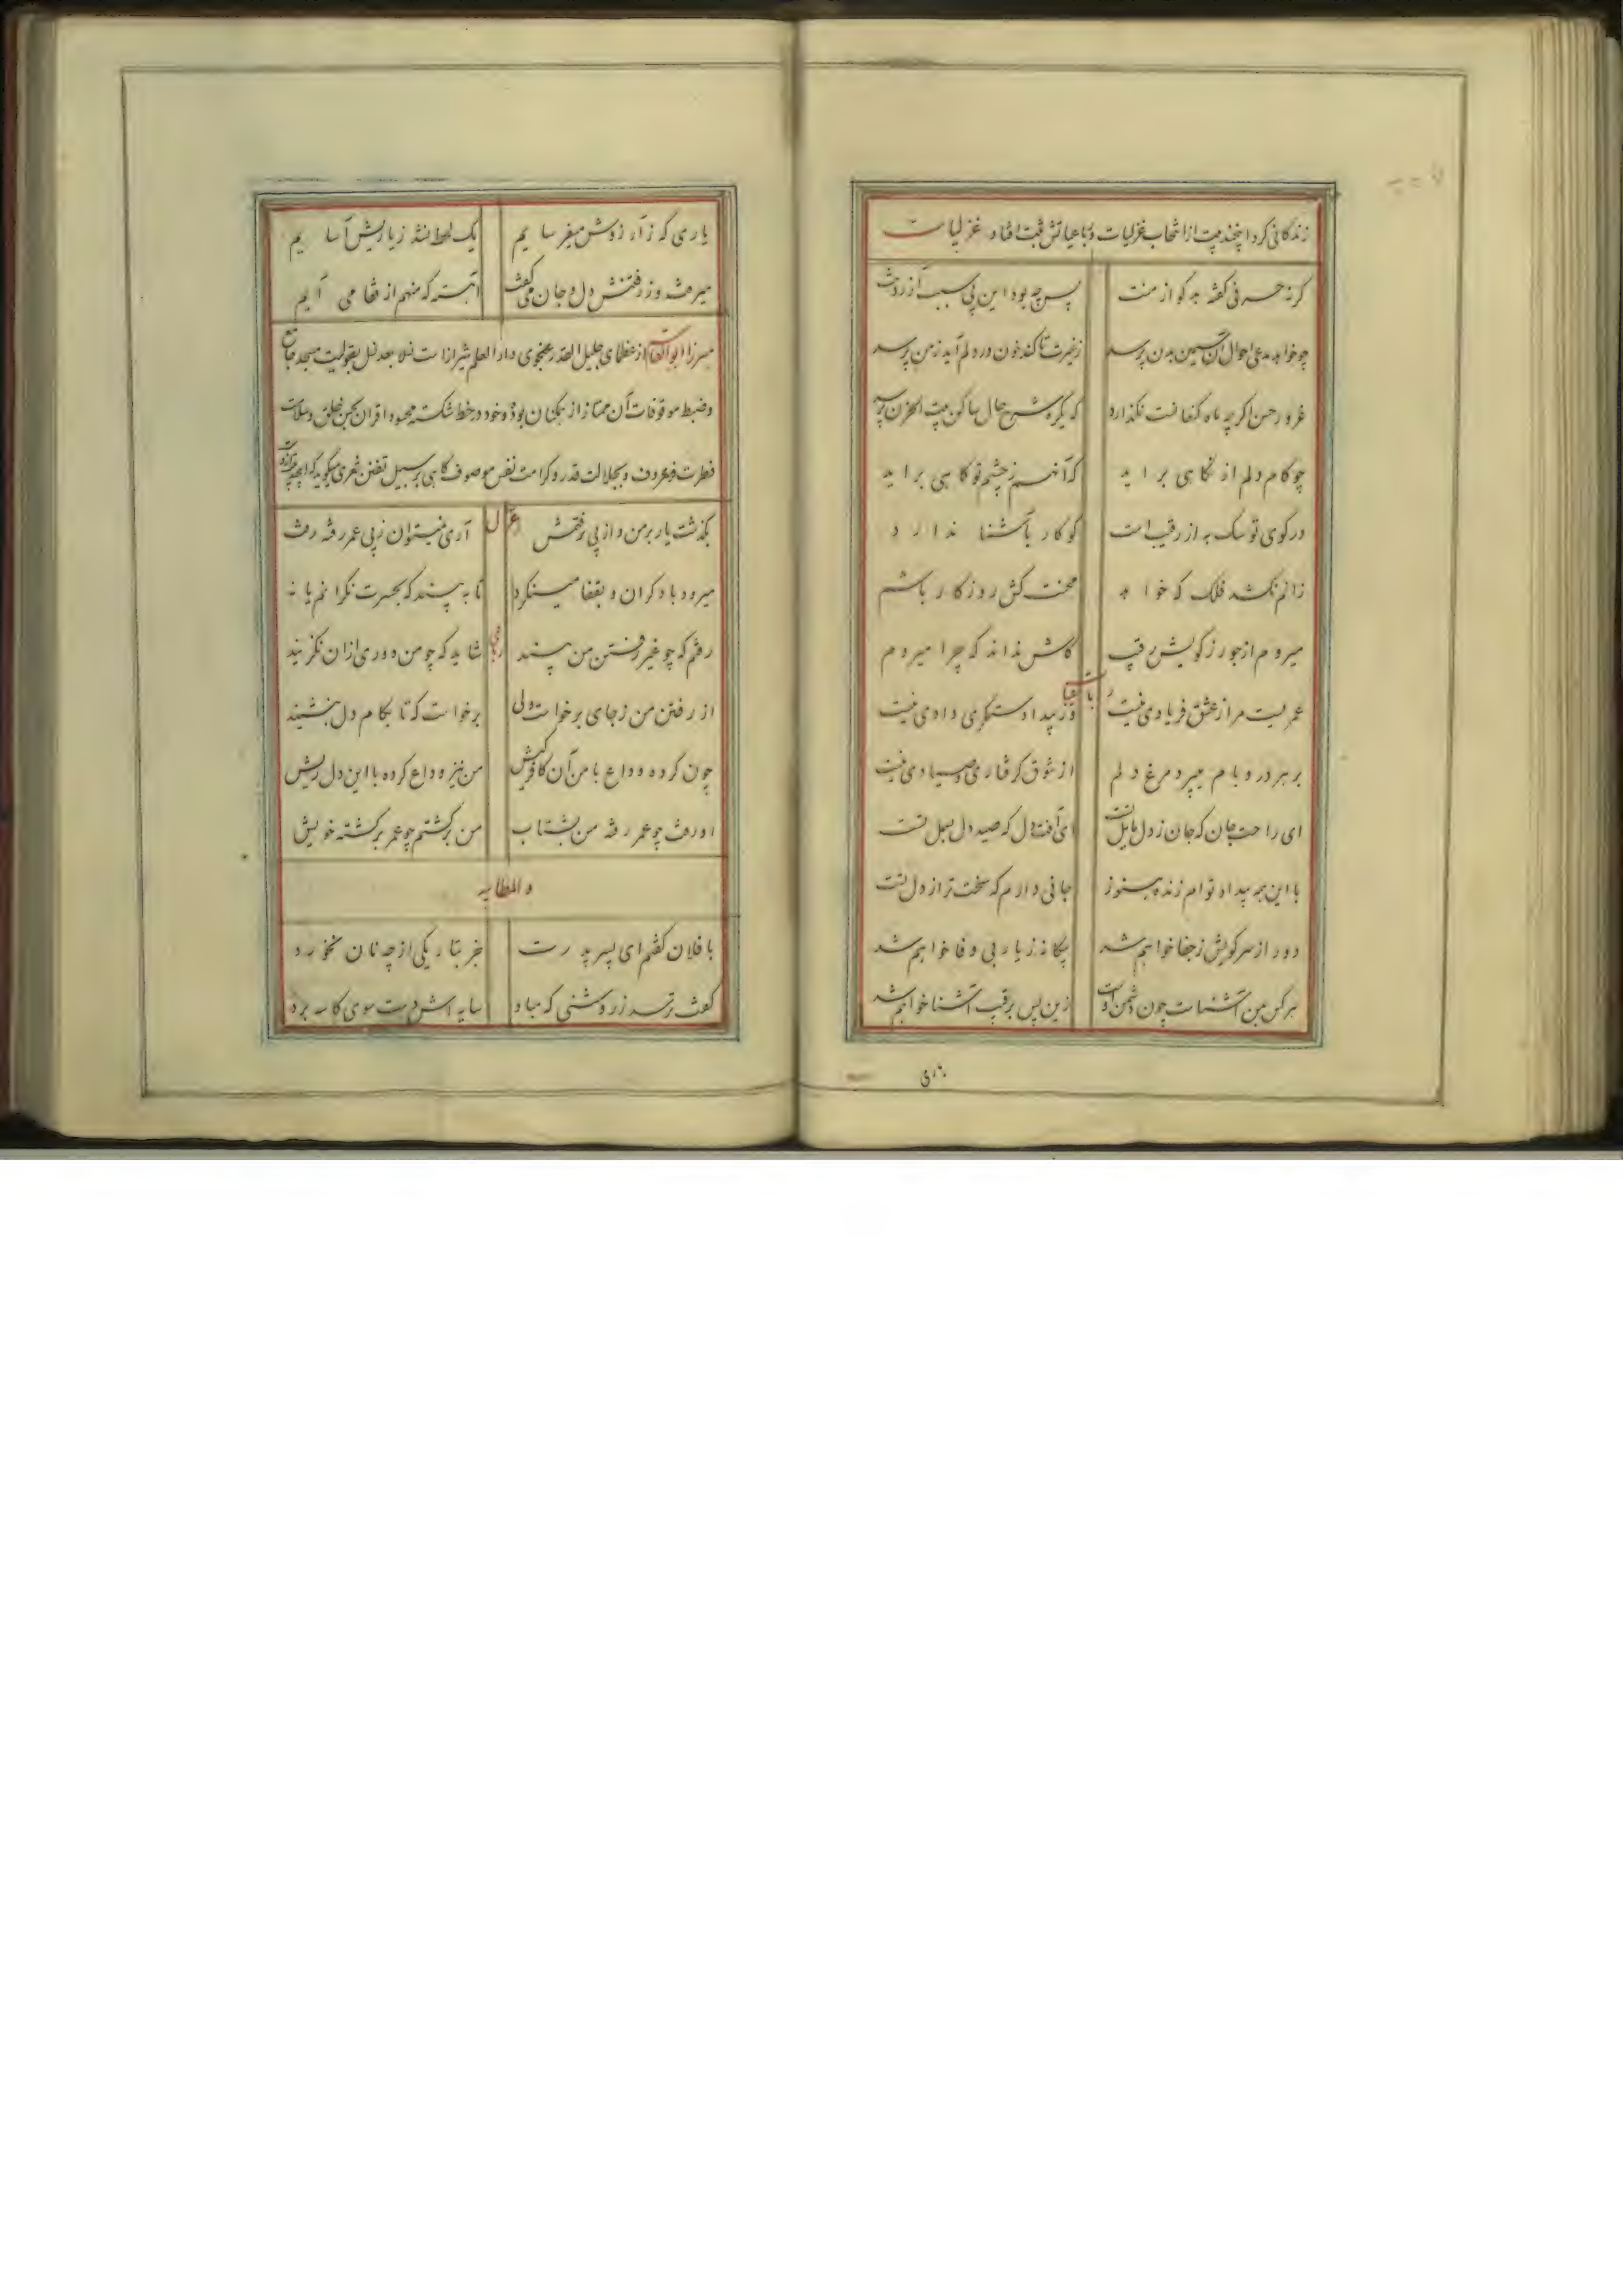 زندگانی کرد این چند بیت از انتخاب غزلیات و رباعیاتش ثبت افتاد غزلیات
گرنه حرفی گفته بدگو از منت پس چه بود این بی سبب آزردنت
چو خواهد مدعی احوال آن سیمین بدن پرسد زغیرت تا کند خون در دلم آید زمن پرسد
غرور حسن اگرچه ماه کنعانت نگذارد که یکره شرح حال ساکن بیت الحزن پرسد
چو کام دلم از نگاهی براید که آنهم زچشم تو گاهی براید
در کوی تو سگ به از رقیب است کو کار بآشنا ندارد
زانم نکشد فلک که خواهد محنت کش روزگار باشم
میروم از جور زکویش رقیب کاش نداند که چرا میروم
رباعیات
عمریست مرا ز عشق فریادی نیست وز بیداد ستمگری دادی نیست
بر هر در و بام میپرد مرغ دلم از شوق گرفتاری و صیادی نیست
ای راحت جان که جان ز دل مایل تست ای آفت دل که صید دل بسمل تست
با این همه بیداد توام زنده هنوز جانی دارم که سخت تر از دل تست
دور از سر کویش زجفا خواهم شد بیگانه زیار بی وفا خواهم شد
هر کس بمن آشناست چون دشمن اوست زین پس برقیب آشنا خواهم شد
یاری که ز آزردنش میفرسایم یک لحظه نشد زیاریش آسایم
میرفت وز رفتنش دل و جان میگفت آهسته که منهم از قفا می آیم
میرزا ابوالقاسم از عظمای جلیل القدر انجوی دارالعلم شیراز است نسلا بعد نسل بتولیت مسجد جامع
وضبط موقوفات آن ممتاز از همگنان بوده و خود در خط شکسته محسود اقران بحسن خلق و سلامت
فطرت معروف و بجلالت قدر و کرامت نفس موصوف گاهی بر سبیل تفنن شعری میگوید
غزل
بگذشت یار بر من و از پی نرفتمش آری نمیتوان ز پی عمر رفته رفت
میرود با دگران و بقفا مینگرد تا به بیند که بحسرت نگرانم یا نه
رباعی
رفتم که چو غیر رفتن من بیند شاید که چو من دوری ازان نگزیند
از رفتن من زجای برخواست ولی برخواست که تا بکام دل بنشیند
چون کرده وداع با من آن کافر کیش من نیز وداع کرده با این دل ریش
او رفت چو عمر رفته من بشتاب من برگشتم چو عمر برگشته خویش
و المطایبه
با فلان گفتم ای پسر پدرت جز بتاریکی از چه نان نخورد
گفت ترسد ز روشنی که مباد سایه اش دست سوی کاسه برد
یاری